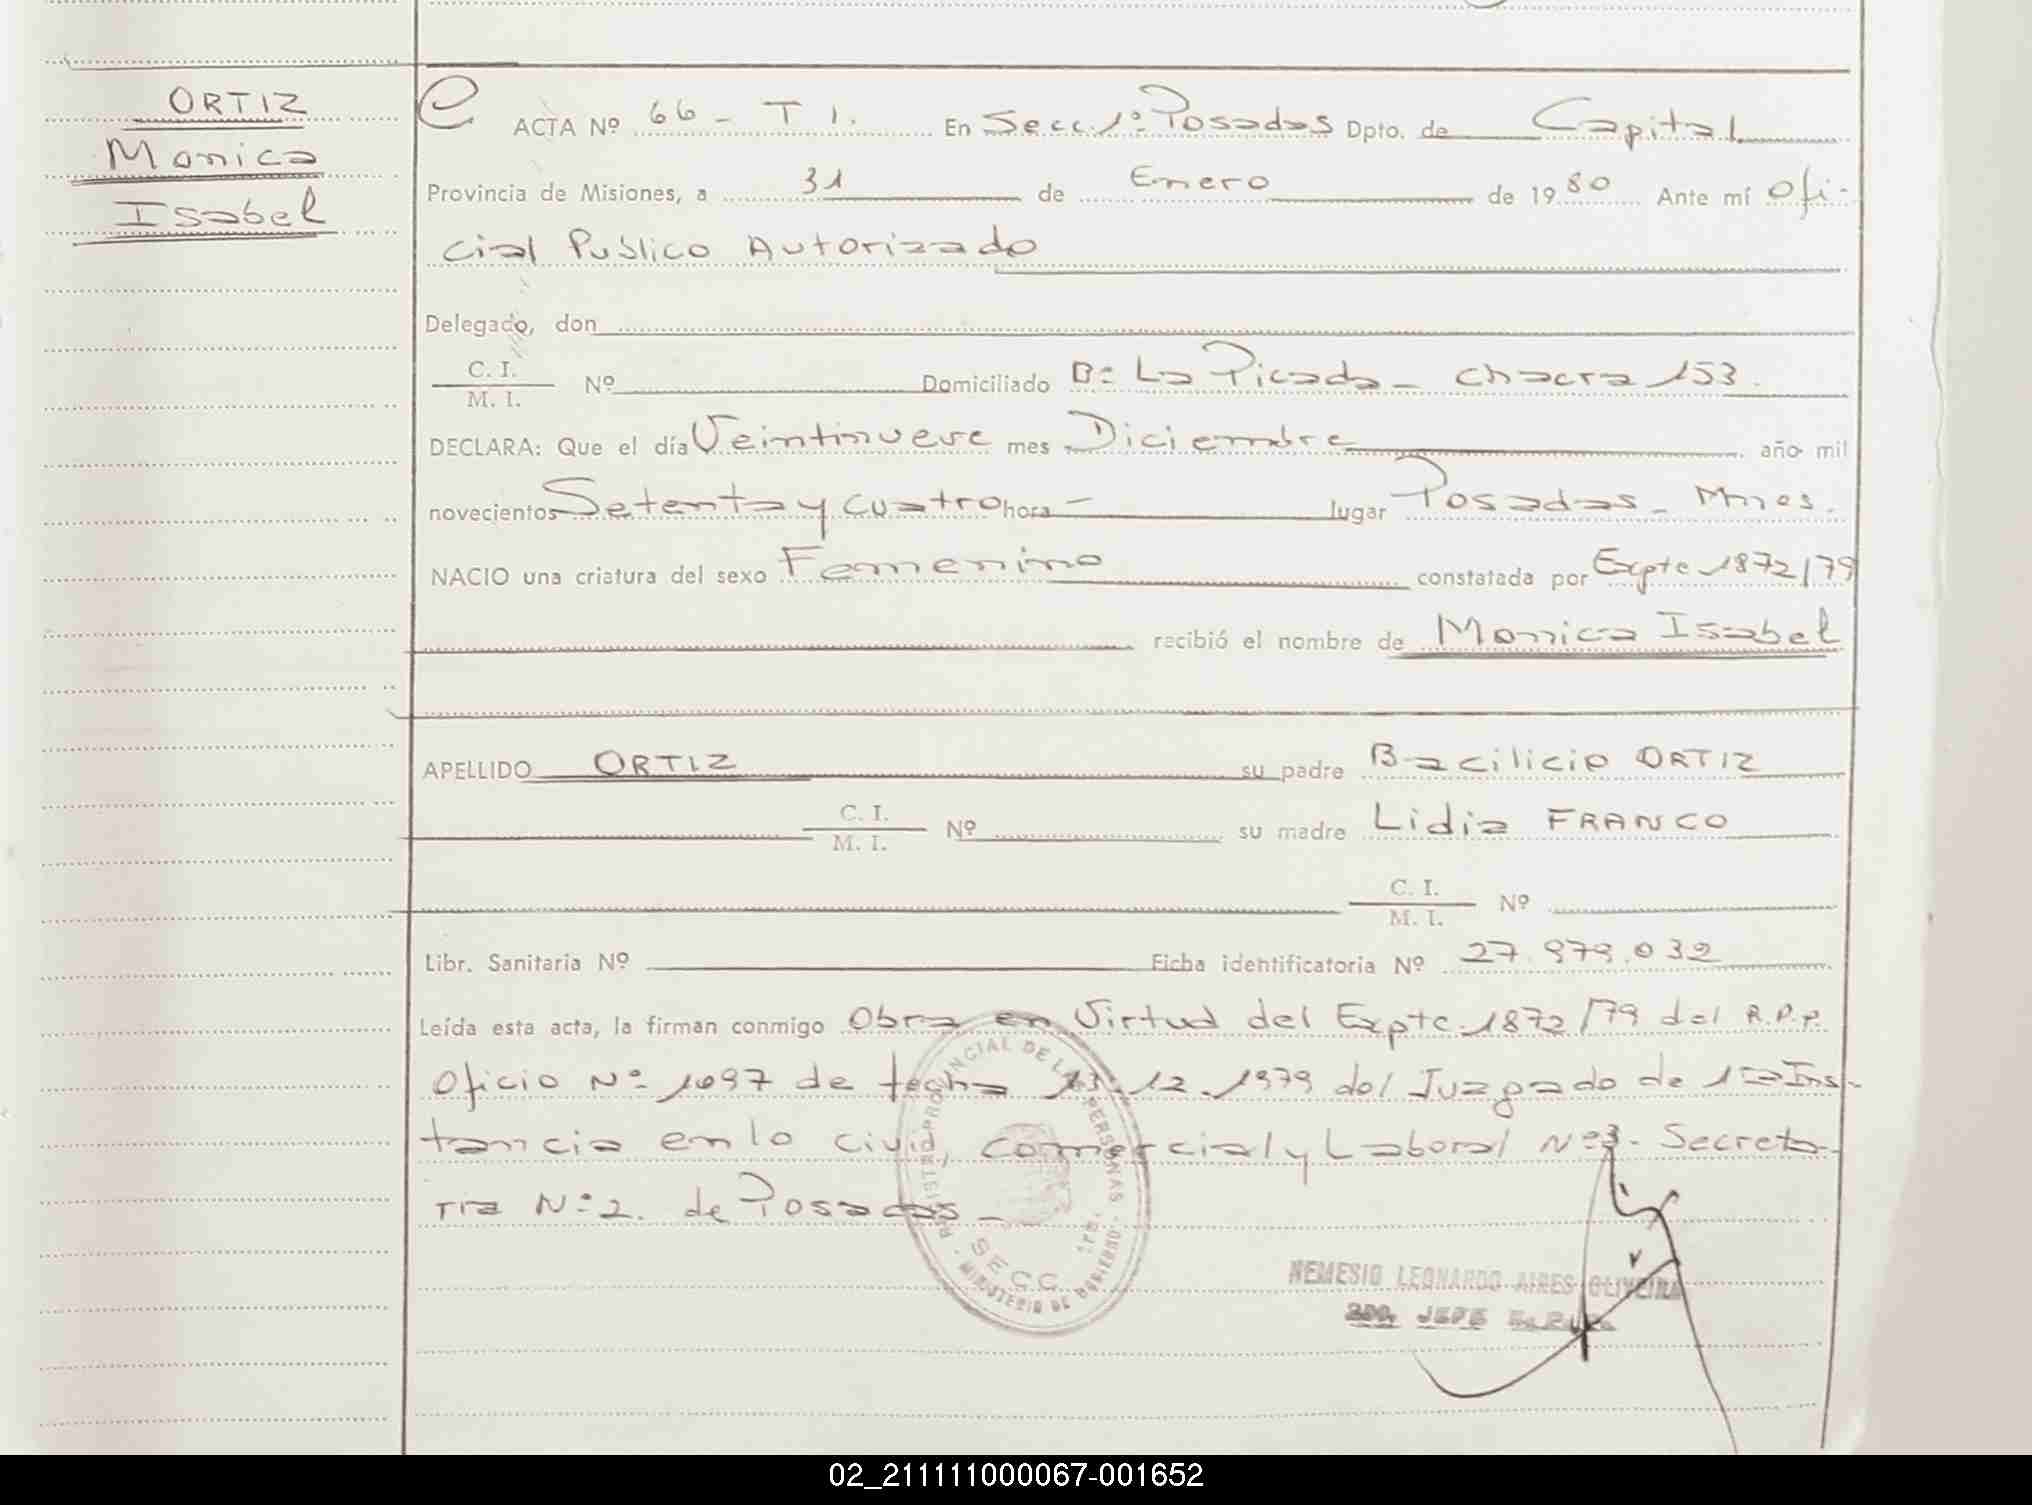 ORTIZ
Monica
Isabel
ACTA Nº 66 - T 1. En Secc 1º Posadas Dpto. de Capital
Provincia de Misiones, a 31 de Enero de 1980 Ante mí Ofi-
cial Publico Autorizado
Delegado, don
C. I.
M. I.
Nº Domiciliado Bº La Picada - chacra 153.
DECLARA: Que el día Veintinueve mes Diciembre año mil
novecientos Setenta y cuatro hora - lugar Posadas - Mnes.
NACIO una criatura del sexo Femenino constatada por Expte 1872/79
recibió el nombre de Monica Isabel
APELLIDO ORTIZ su padre Bacilicio ORTIZ
C. I.
M. I.
Nº su madre Lidia FRANCO
C. I.
M. I.
Nº
Libr. Sanitaria Nº Ficha identificatoria Nº 27.979.032
Leída esta acta, la firman conmigo Obra en Virtud del Expte. 1872/79 del R.P.P.
Oficio Nº 1097 de fecha 13.12.1979 del Juzgado de 1ra Ins-
tancia en lo civil, comercial y Laboral Nº3. Secreta-
ria Nº2. de Posadas -
REGISTRO PROVINCIAL DE LAS PERSONAS
MINISTERIO DE GOBIERNO
SECC. 1ra.
NEMESIO LEONARDO AIRES OLIVEIRA
JEFE
02_211111000067-001652